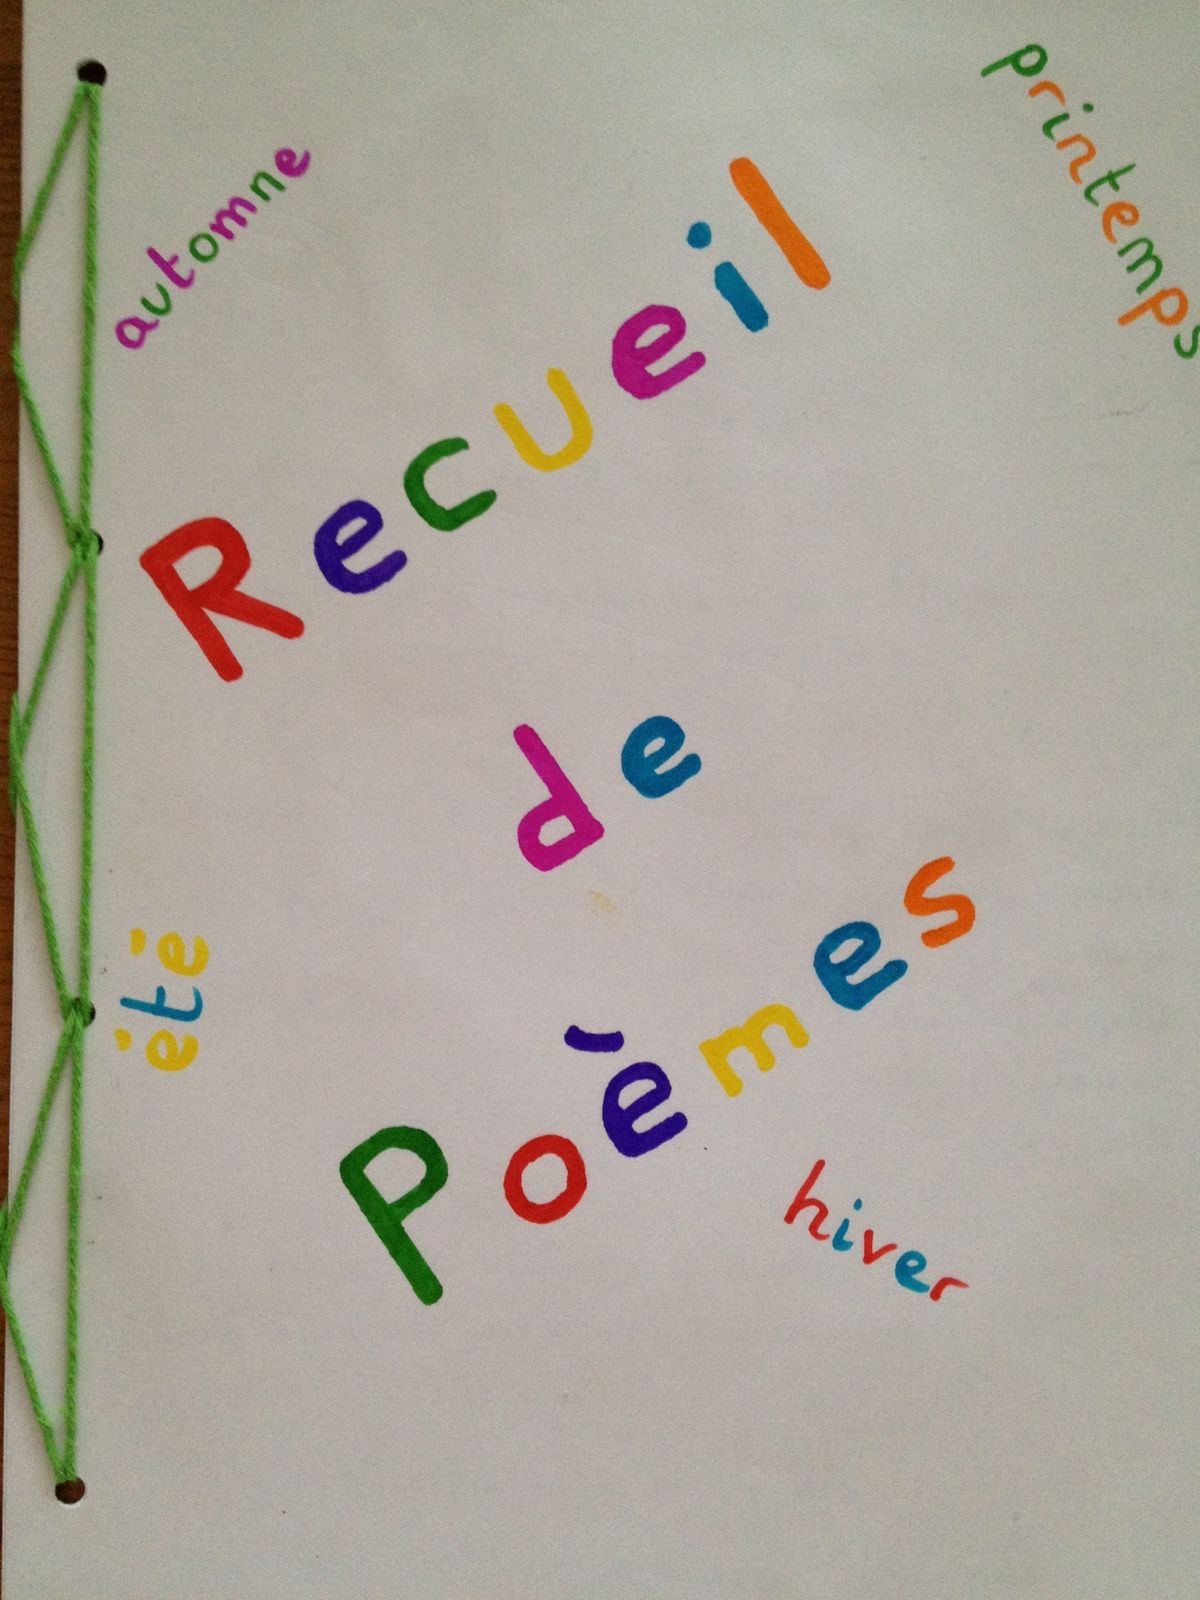 automne
printemps
Recueil
de
Poèmes
été
hiver